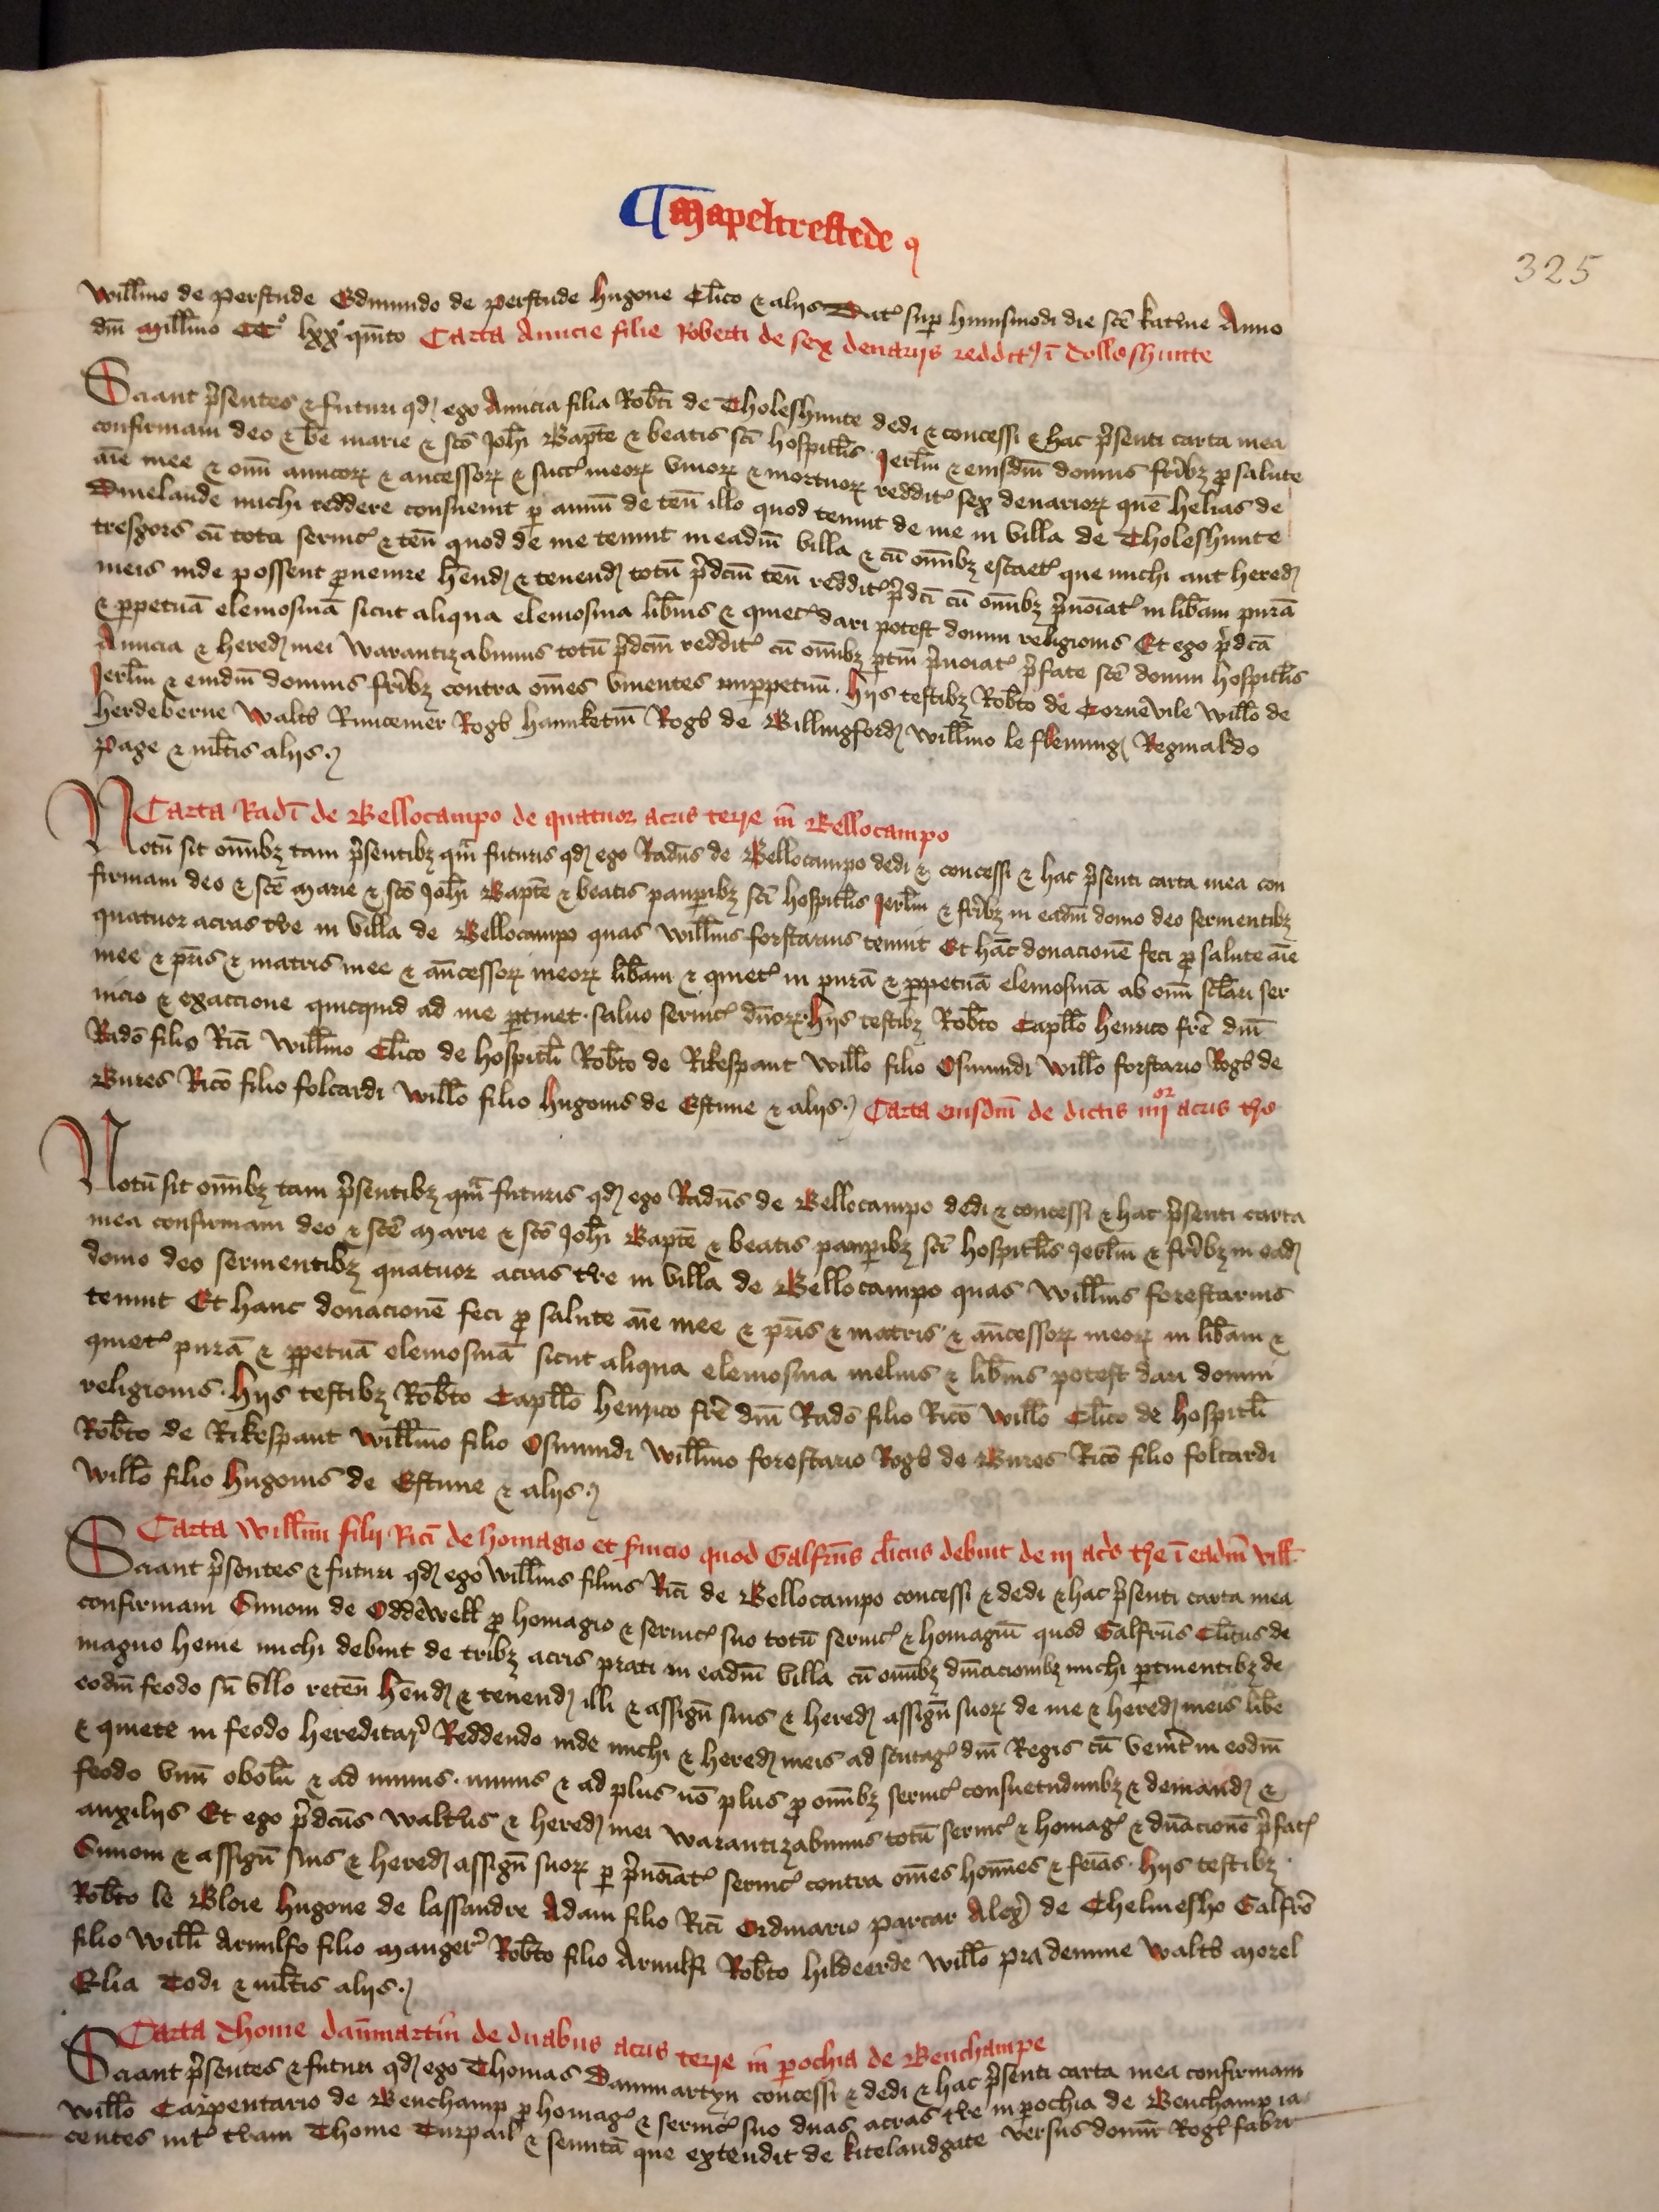 ¶ Mapeltrestede
325
Willm̄o de Perstude Edmundo de Perstude Hugone Clico & alijs Dat' sup̱ hui'smodi die scē Kat'ine Anno
dm̄ Mill̄mo CC° lxx° qui̅to Carta Amicie filie Roberti de sex denarijs reddit' ī Tolleshunte
Sciant p̃sentes & futuri qđ ego Amicia filia Rob̄ti de Tholeshunte dedi & concessi & hac p̃senti carta mea
confirmaui deo & bē marie & scō Joh̄i Bapt̄e & beatis scī hospitłis Jerłm & eiusdm̄ domus fr̄ibȝ p̱ salute
aīe mee & om̄i amicoꝝ & ancessoꝝ & succ' meoꝝ viuoꝝ & mortuoꝝ reddit' sex denarioꝝ quē helias de
michi reddere consueuit p̱ annū de ten̄ illo quod tenuit de me in villa de Tholeshunte
tresgors cū toto seruic' & ten̄ quod de me tenuit in eadm̄ villa & cū om̄ibȝ escaet' que michi aut hered
meis inde possent p̱uenire hēnd & tenend totū p̃dcm̄ ten̄ reddit' p̃dcī cū om̄ibȝ p̃noīat' in lib̄am purā
& p̱petuā elemosinā sicut aliqua elemosina lib̄ius & quiet' dari potest domui religionis Et ego p̃dcā
Amicia & hered mei Warantizabimus totū p̃dcm̄ reddit' cū om̄ibȝ p̱tin̄ p̃noīat' p̃fate scē domui hospitłis
Jerłm & eiusdm̄ domus fr̄ibȝ contra om̄es viuentes imp̱petuū. Hijs testibȝ Rob̄to de Cornēvile Willo de
herdeberne Walt̄o Runcemer Rog̃o Rog̃o de Billingford Willm̄o le fleming Reginaldo
Page & mltis alijs.
Carta Radī de Bellocampo de quatuor acris terre in Bellocampo
Notū sit om̄ibȝ tam p̃sentibȝ qm̃ futuris qđ ego Radus de Bellocampo dedi & concessi & hac p̃senti carta mea con
firmaui deo & scē Marie & scō Joh̄i Bapt̄e & beatis paup̱ibȝ scī hospitłis Jerłm & fr̄ibȝ in eadm̄ domo deo seruientibȝ
quatuor acras t̄re in villa de Bellocampo quas Willm̄s forstarius tenuit Et hāc donacionē feci p̱ salute aīe
mee & pr̄is & matris mee & an̄cessoꝝ meoꝝ lib̄am & quiet' in purā & p̱petuā elemosinā ab om̄i sclari ser
uicio & exaccione quicquid ad me p̱tinet. saluo seruic' dn̄oꝝ. Hijs testibȝ Rob̄to Capllo Henrico fr̄e dm̄
Radō filio Ricī Willm̄o Clīco de hospitłi Rob̄to de Rikespaut Willo filio Osmundi Willo forstario Rog̃o de
Bures Ricō filio folcardi Willo filio Hugonis de Estune & alijs. Carta eiusdm̄ de dictis iiijor acris t̄re
Notū sit om̄ibȝ tam p̃sentibȝ qm̃ futuris qđ ego Radus de Bellocampo dedi & concessi & hac p̃senti carta
mea confirmaui deo & scē Marie & scō Joh̄i Bapt̄e & beatis paup̱ibȝ scī hospitłis Jerłm & fr̄ibȝ in ead
domo deo seruientibȝ quatuor acras t̄re in villa de Bellocampo quas Willm̄s forestarius
tenuit Et hanc donacionē feci p̱ salute aīe mee & pr̄is & matris & an̄cessoꝝ meoꝝ in lib̄am &
quiet' purā & p̱petuā elemosinā sicut aliqua elemosina melius & lib̄ius potest dari domui
religionis. Hijs testibȝ Rob̄to Capllo Henrico fr̄e dm̄ Radō filio Ricō Willo Clīco de hospitłi
Rob̄to de Rikespaut Willm̄o filio Osmundi Willm̄o forestario Rog̃o de Bures Ricō filio folcardi
Willo filio Hugonis de Estune & alijs.
Carta Willm̄i filij Ricī de homagio et s̃uicio quod Galfrus cl̄icus debuit de iij acr̄s t̄re ī eadm̄ vill
Sciant p̃sentes & futuri qđ ego Willm̄s filius Ricī de Bellocampo concessi & dedi & hac p̃senti carta mea
confirmaui Simoni de Oddēwell p̱ homagio & seruic' suo totū seruic' & homagiū quod Galfrus Clīcus de
magno heine michi debuit de tribȝ acris prati in eadm̄ villa cū om̄ibȝ dn̄acionibȝ michi p̱tinentibȝ de
eodm̄ feodo sn̄ vllo reten̄ hēnd & tenend illi & assign̄ suis & hered assign̄ suoꝝ de me & hered meis lib̄e
& quiete in feodo hereditar' Reddendo inde michi & hered meis ad scutag' dm̄ Regis cū venit in eodm̄
feodo vnū obolū & ad minus. minus & ad plus nō plus p̱ om̄ibȝ seruic' consuetudinibȝ & demand &
auxilijs Et ego p̃dcūs Walt'us & hered mei Warantizabimus totū seruic' & homag' & dn̄acionē p̃fat'
Simoni & assign̄ suis & hered assign̄ suoꝝ p̱ p̃noīat' seruic' contra om̄es hoīes & feīas. Hijs testibȝ
Rob̄to le Bloie Hugone de lassandre Adam filio Ricī Ordinario parcar Alex' de Chelmesho Galfrō
filio Willi Arnulfo filio mauger' Rob̄to filio Arnulfi Rob̄to Hildeerde Willo prademine Walt̄o morel
Elia Todi & mltis alijs.
Carta Thome daūmartin de duabus acris terre in p̱ochia de Benchampe
Sciant p̃sentes & futuri qđ ego Thomas Dammartyn concessi & dedi & hac p̃senti carta mea confirmaui
Willo Carpentario de Benchamp p̱ homag' & seruic' suo duas acras t̄re in p̱ochia de Benchamp ia
centes int' t̄ram Thome Turpail & semitā que extendit de kitelandgate versus domū Rog̃i fabri